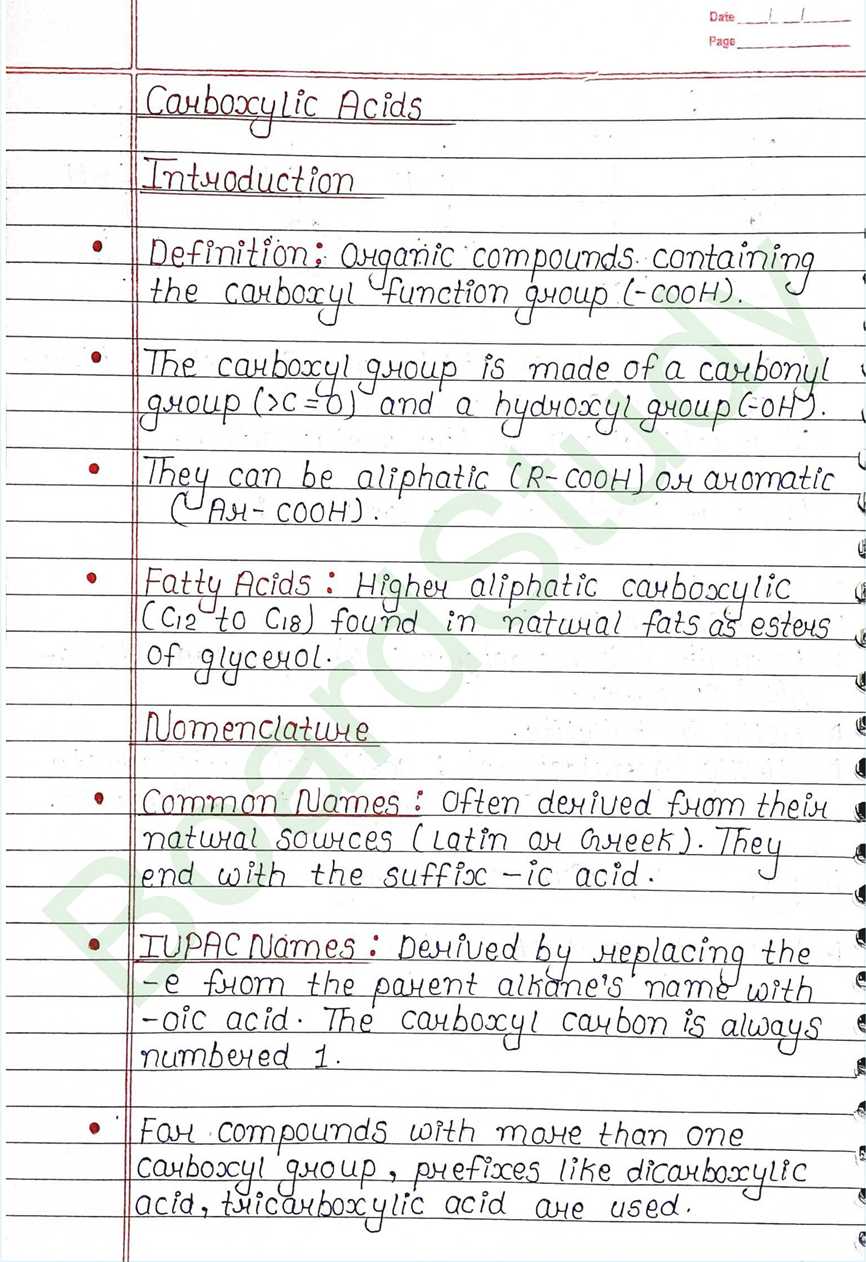 Date / /
Page
Carboxylic Acids
Introduction
• Definition: Organic compounds containing
the carboxyl function group (-COOH).
• The carboxyl group is made of a carbonyl
group (>C=O) and a hydroxyl group (-OH).
• They can be aliphatic (R-COOH) or aromatic
(Ar-COOH).
• Fatty Acids: Higher aliphatic carboxylic
(C12 to C18) found in natural fats as esters
of glycerol.
Nomenclature
• Common Names: Often derived from their
natural sources (Latin or Greek). They
end with the suffix -ic acid.
• IUPAC Names: Derived by replacing the
-e from the parent alkane's name with
-oic acid. The carboxyl carbon is always
numbered 1.
• For compounds with more than one
carboxyl group, prefixes like dicarboxylic
acid, tricarboxylic acid are used.
BoardStudy